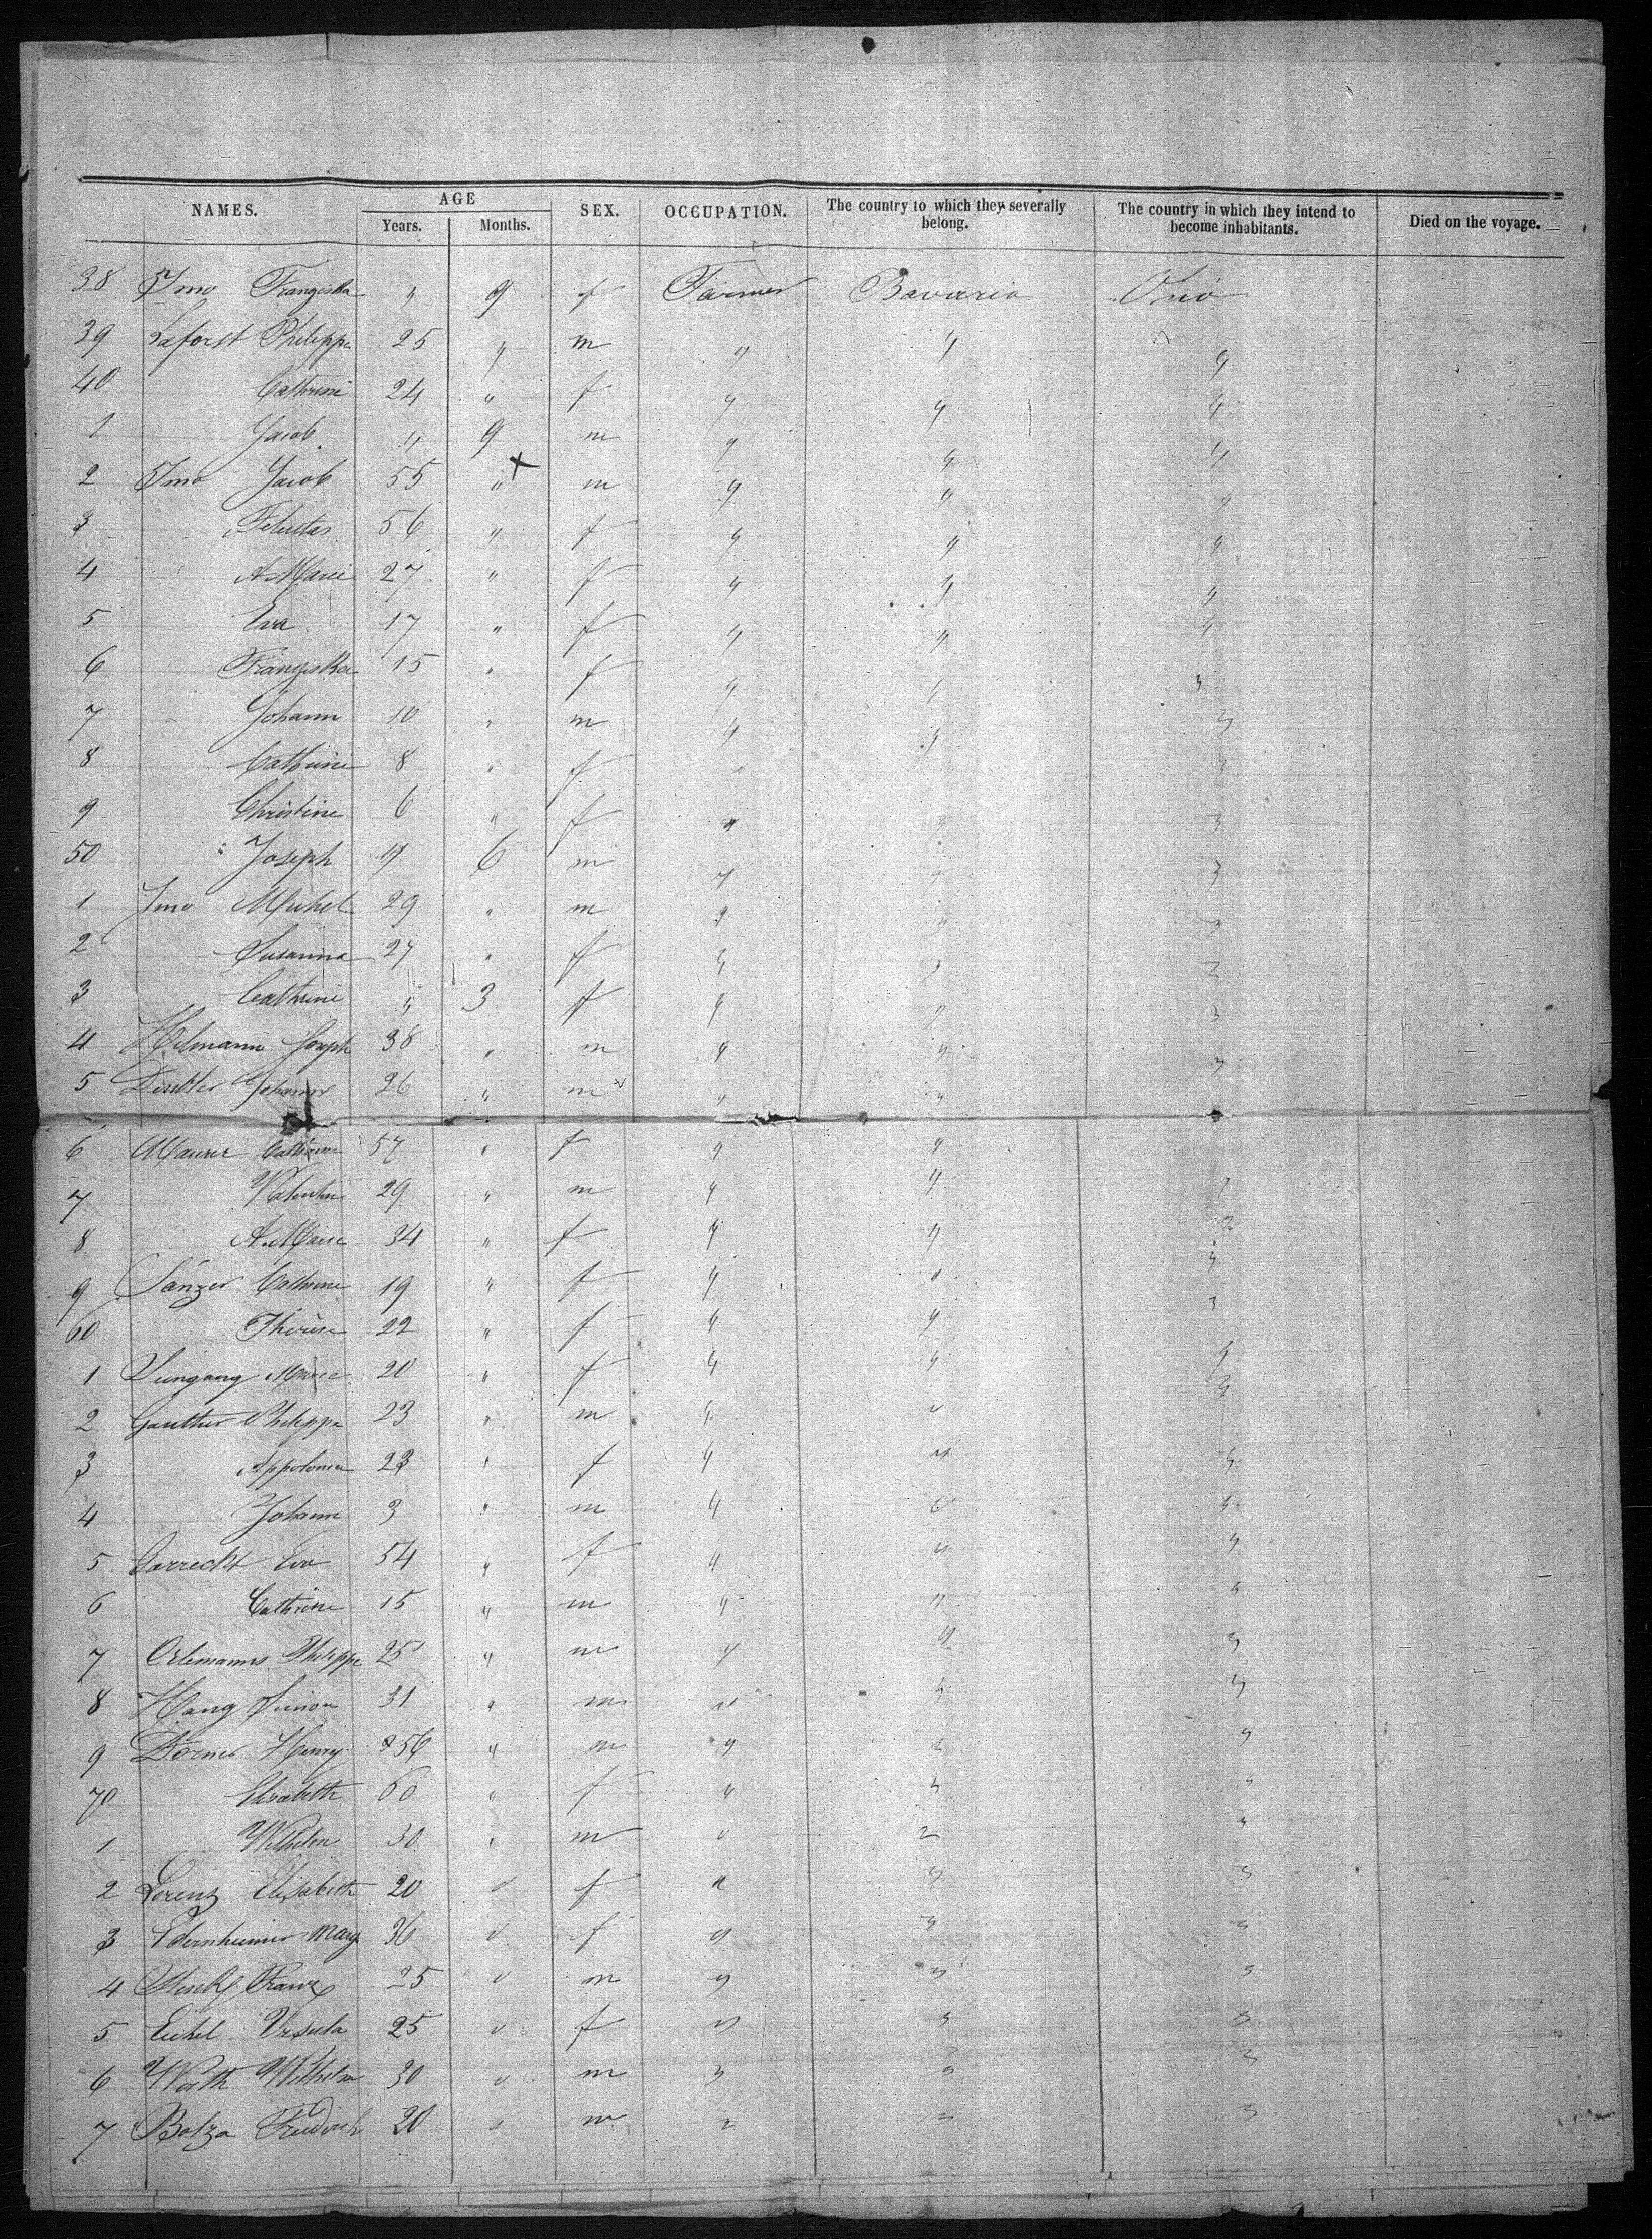 NAMES. AGE SEX. OCCUPATION. The country to which they severally belong. The country in which they intend to become inhabitants. Died on the voyage.
Years. Months.
38 Imo Franziska " 9 f Farmer Bavaria Ohio
39 Laforst Philippe 25 " m " " "
40 Cathrine 24 " f " " "
1 Jacob " 9 m " " "
2 Imo Jacob 55 " x m " " "
3 Felicitas 56 " f " " "
4 A Marie 27 " f " " "
5 Eva 17 " f " " "
6 Franziska 15 " f " " "
7 Johann 10 " m " " "
8 Cathrine 8 " f " "
9 Christine 6 " f " " "
50 " Joseph " 6 m " " "
1 Imo Michel 29 " m " " "
2 Susanna 27 " f " " "
3 Cathrine " 3 f " " "
4 Hilmann Joseph 38 " m " " "
5 Johann 26 " m " " "
6 Maurer Cathrine 57 " f " "
7 Valentin 29 " m " " "
8 A. Marie 34 " f " " "
9 Sänzer Cathrine 19 " f " " "
60 Therese 22 " f " " "
1 Marie 20 " f " " "
2 Gauther Philippe 23 " m " " "
3 Appolonia 23 " f " " "
4 Johann 3 " m " " "
5 Carrecht Eva 54 " f " " "
6 Cathrine 15 " m " " "
7 Orlemanns Philippe 25 " m " " "
8 Hang Simon 31 " m " " "
9 Dörner Henry 56 " m " " "
70 Elisabeth 60 " f " " "
1 Wilhelm 30 " m " " "
2 Lorenz Elisabeth 20 " f " " "
3 Edernheimer Marg 36 " f " " "
4 Franz 25 " m " " "
5 Eichel Ursula 25 " f " " "
6 Werth Wilhelm 30 " m " " "
7 Bolza Friedrich 20 " m " " "